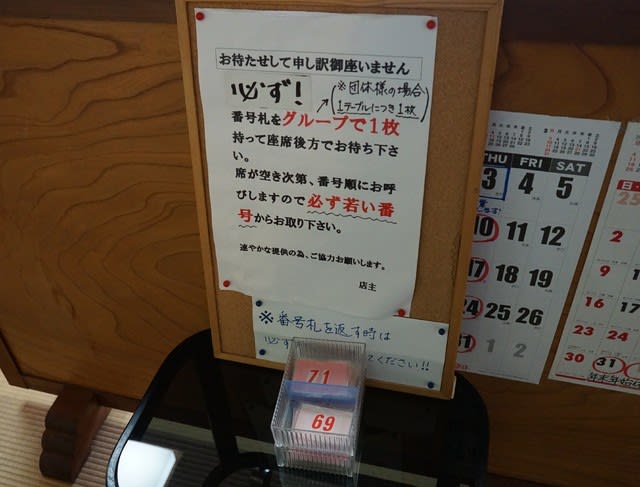 お待たせして申し訳御座いません
必ず!
(※団体様の場合
1テーブルにつき1枚)
番号札をグループで1枚
持って座席後方でお待ち下さ
い。
席が空き次第、番号順にお呼
びしますので必ず若い番
号からお取り下さい。
速やかな提供の為、ご協力お願いします。
店主
※番号札を返す時は
必ず
ください!!
71
69
THU FRI SAT
3 4 5
10 11 12
17 18 19
24 25 26
31 1 2
日
25
2
9 10
16 17
23 24
30 31
年末年始